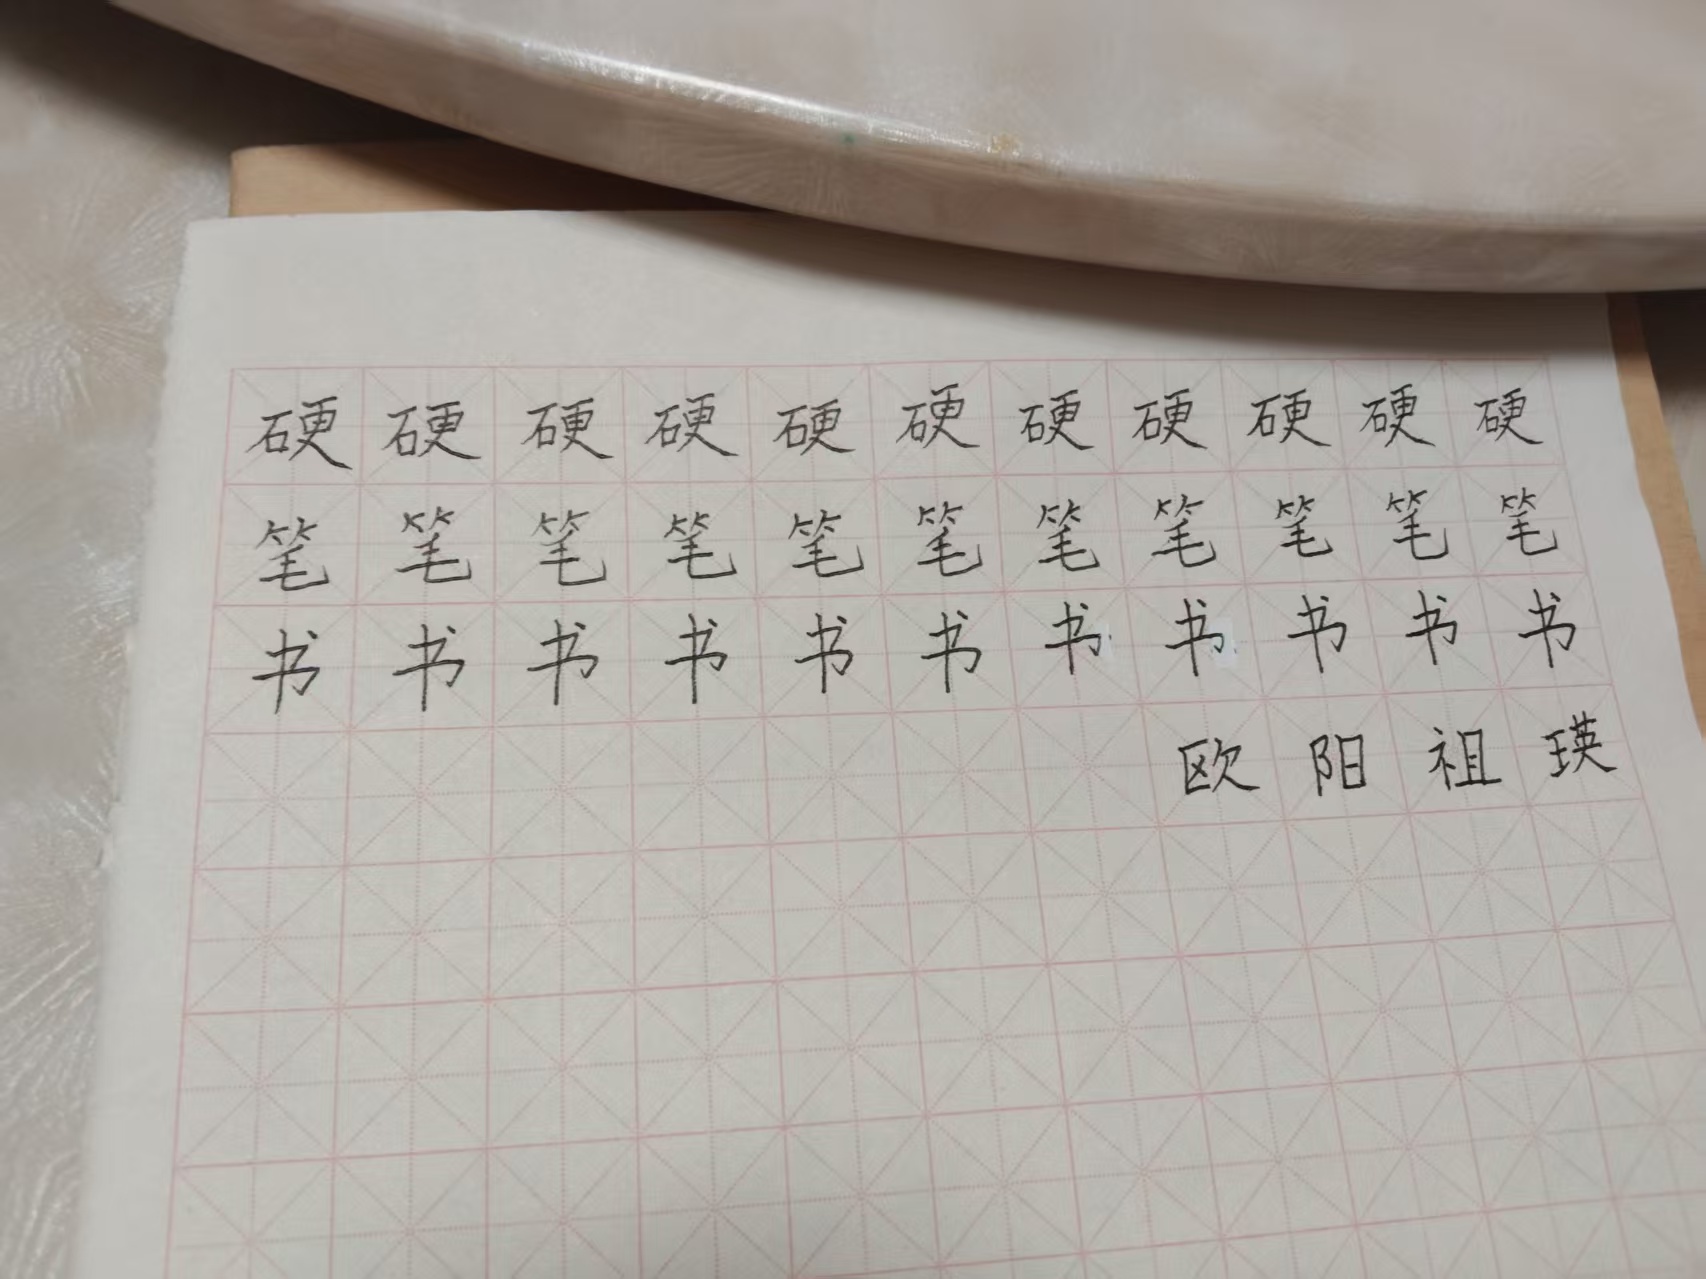 硬硬硬硬硬硬硬硬硬硬硬
笔笔笔笔笔笔笔笔笔笔笔
书书书书书书书书书书书
欧阳祖瑛